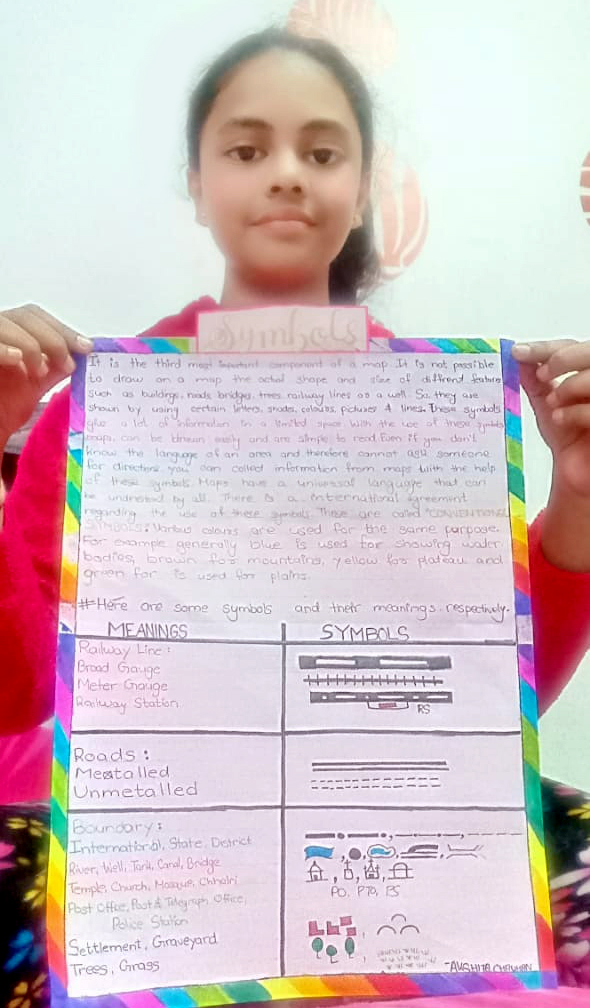 Symbols
It is the third most important component of a map. It is not possible
to draw on a map the actual shape and size of diffrend feature
such as buildings, roads, bridges, trees, railway lines as a well. So, they are
shown by using certain letters, shades, colours, pictures & lines. These symbols
give a lot of information in a limited space. With the use of these symbols
maps, can be drawn easily and are simple to read. Even if you don't
know the language of an area and therefore cannot ask someone
for directions, you can collect information from maps with the help
of these symbols. Maps have a universal language that can
be understood by all. There is a international agreement
regarding the use of these symbols. These are called "CONVENTIONAL
SYMBOLS: Various colours are used for the same purpose.
For example generally blue is used for showing water
bodies, brown for mountains, yellow for plateau and
green for is used for plains.
#Here are some symbols and their meanings. respectively.
MEANINGS SYMBOLS
Railway Line:
Broad Gauge
Meter Gauge
Railway Station
RS
Roads:
Meatalled
Unmetalled
Boundary:
International, State, District
River, Well, Tank, Canal, Bridge
Temple, Church, Mosque, Chhatri
PO, PTO, PS
Post Office, Post & Telegraph Office,
Police Station
Settlement, Graveyard
Trees, Grass